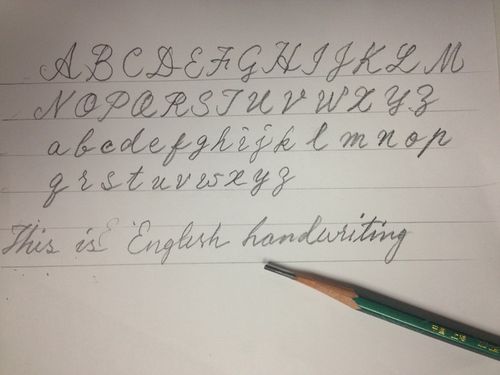 A B C D E F G H I J K L M
N O P Q R S T U V W X Y Z
a b c d e f g h i j k l m n o p
q r s t u v w x y z
This is English handwriting